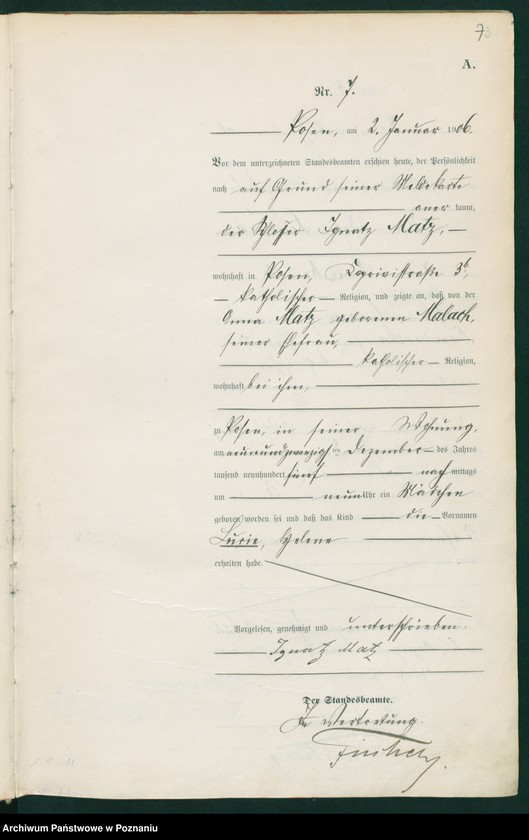 73
A.
Nr. 7.
Posen, am 2. Januar 1906.
Vor dem unterzeichneten Standesbeamten erschien heute, der Persönlichkeit
nach auf Grund seiner Meldekarte
anerkannt,
der Schlosser Ignatz Matz,
wohnhaft in Posen, Caprivistraße 3b,
katholischer Religion, und zeigte an, daß von der
Anna Matz geborenen Malach,
seiner Ehefrau,
katholischer Religion,
wohnhaft bei ihm,
zu Posen, in seiner Wohnung,
am einundzwanzigsten Dezember des Jahres
tausend neunhundert fünf nachmittags
um neun Uhr ein Mädchen
geboren worden sei und daß das Kind die Vornamen
Helene
erhalten habe.
Vorgelesen, genehmigt und unterschrieben.
Ignatz Matz
Der Standesbeamte.
In Vertretung.
Archiwum Państwowe w Poznaniu